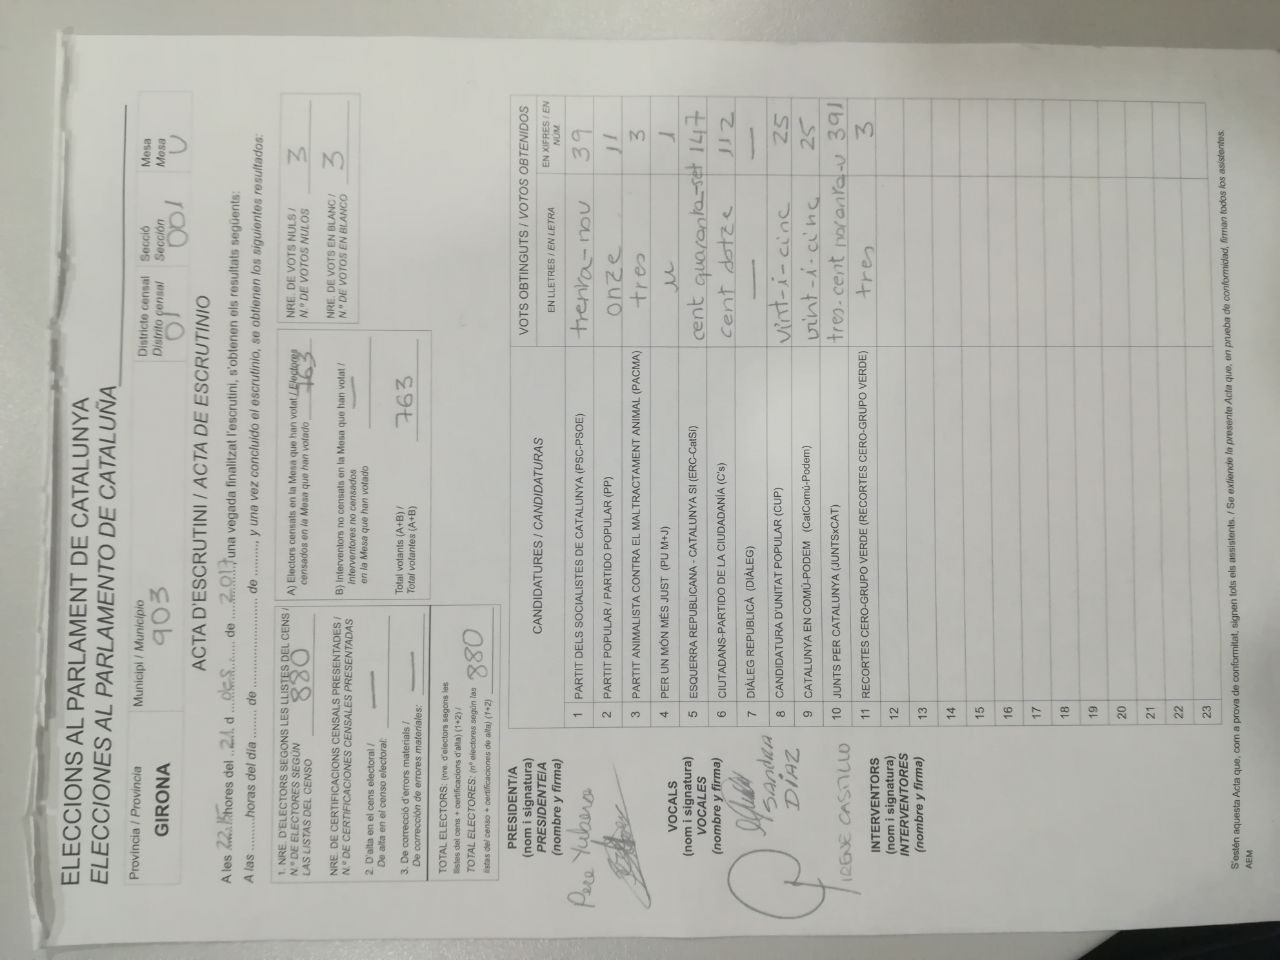 ELECCIONS AL PARLAMENT DE CATALUNYA
ELECCIONES AL PARLAMENTO DE CATALUÑA
Província / Provincia
GIRONA
Municipi / Municipio
903
Districte censal
Distrito censal
01
Secció
Sección
001
Mesa
Mesa
U
ACTA D'ESCRUTINI / ACTA DE ESCRUTINIO
A les 22.15 hores del 21 d des de 2017, una vegada finalitzat l'escrutini, s'obtenen els resultats següents:
A las .......... horas del día ........ de ........................ de ........., y una vez concluido el escrutinio, se obtienen los siguientes resultados:
1. NRE. D'ELECTORS SEGONS LES LLISTES DEL CENS /
N.º DE ELECTORES SEGÚN
LAS LISTAS DEL CENSO
880
NRE. DE CERTIFICACIONS CENSALS PRESENTADES /
N.º DE CERTIFICACIONES CENSALES PRESENTADAS
2. D'alta en el cens electoral /
De alta en el censo electoral: —
3. De correcció d'errors materials /
De corrección de errores materiales: —
TOTAL ELECTORS: (nre. d'electors segons les
llistes del cens + certificacions d'alta) (1+2) /
TOTAL ELECTORES: (nº electores según las
listas del censo + certificaciones de alta) (1+2)
880
A) Electors censats en la Mesa que han votat / Electores
censados en la Mesa que han votado
763
B) Interventors no censats en la Mesa que han votat /
Interventores no censados
en la Mesa que han votado
—
Total votants (A+B) /
Total votantes (A+B)
763
NRE. DE VOTS NULS /
N.º DE VOTOS NULOS 3
NRE. DE VOTS EN BLANC /
N.º DE VOTOS EN BLANCO 3
CANDIDATURES / CANDIDATURAS
VOTS OBTINGUTS / VOTOS OBTENIDOS
EN LLETRES / EN LETRA
EN XIFRES / EN NÚM.
1 PARTIT DELS SOCIALISTES DE CATALUNYA (PSC-PSOE) trenta-nou 39
2 PARTIT POPULAR / PARTIDO POPULAR (PP) onze 11
3 PARTIT ANIMALISTA CONTRA EL MALTRACTAMENT ANIMAL (PACMA) tres 3
4 PER UN MÓN MÉS JUST (PU M+J) u 1
5 ESQUERRA REPUBLICANA - CATALUNYA SI (ERC-CatSí) cent quaranta-set 147
6 CIUTADANS-PARTIDO DE LA CIUDADANÍA (C's) cent dotze 112
7 DIÀLEG REPUBLICÀ (DIÀLEG) — —
8 CANDIDATURA D'UNITAT POPULAR (CUP) vint-i-cinc 25
9 CATALUNYA EN COMÚ-PODEM (CatComú-Podem) vint-i-cinc 25
10 JUNTS PER CATALUNYA (JUNTSxCAT) tres-cent noranta-u 391
11 RECORTES CERO-GRUPO VERDE (RECORTES CERO-GRUPO VERDE) tres 3
12
13
14
15
16
17
18
19
20
21
22
23
PRESIDENT/A
(nom i signatura)
PRESIDENTE/A
(nombre y firma)
Pere Yubero
VOCALS
(nom i signatura)
VOCALES
(nombre y firma)
SANDRA
DÍAZ
IRENE CASTILLO
INTERVENTORS
(nom i signatura)
INTERVENTORES
(nombre y firma)
S'estén aquesta Acta que, com a prova de conformitat, signen tots els assistents. / Se extiende la presente Acta que, en prueba de conformidad, firman todos los asistentes.
AEM